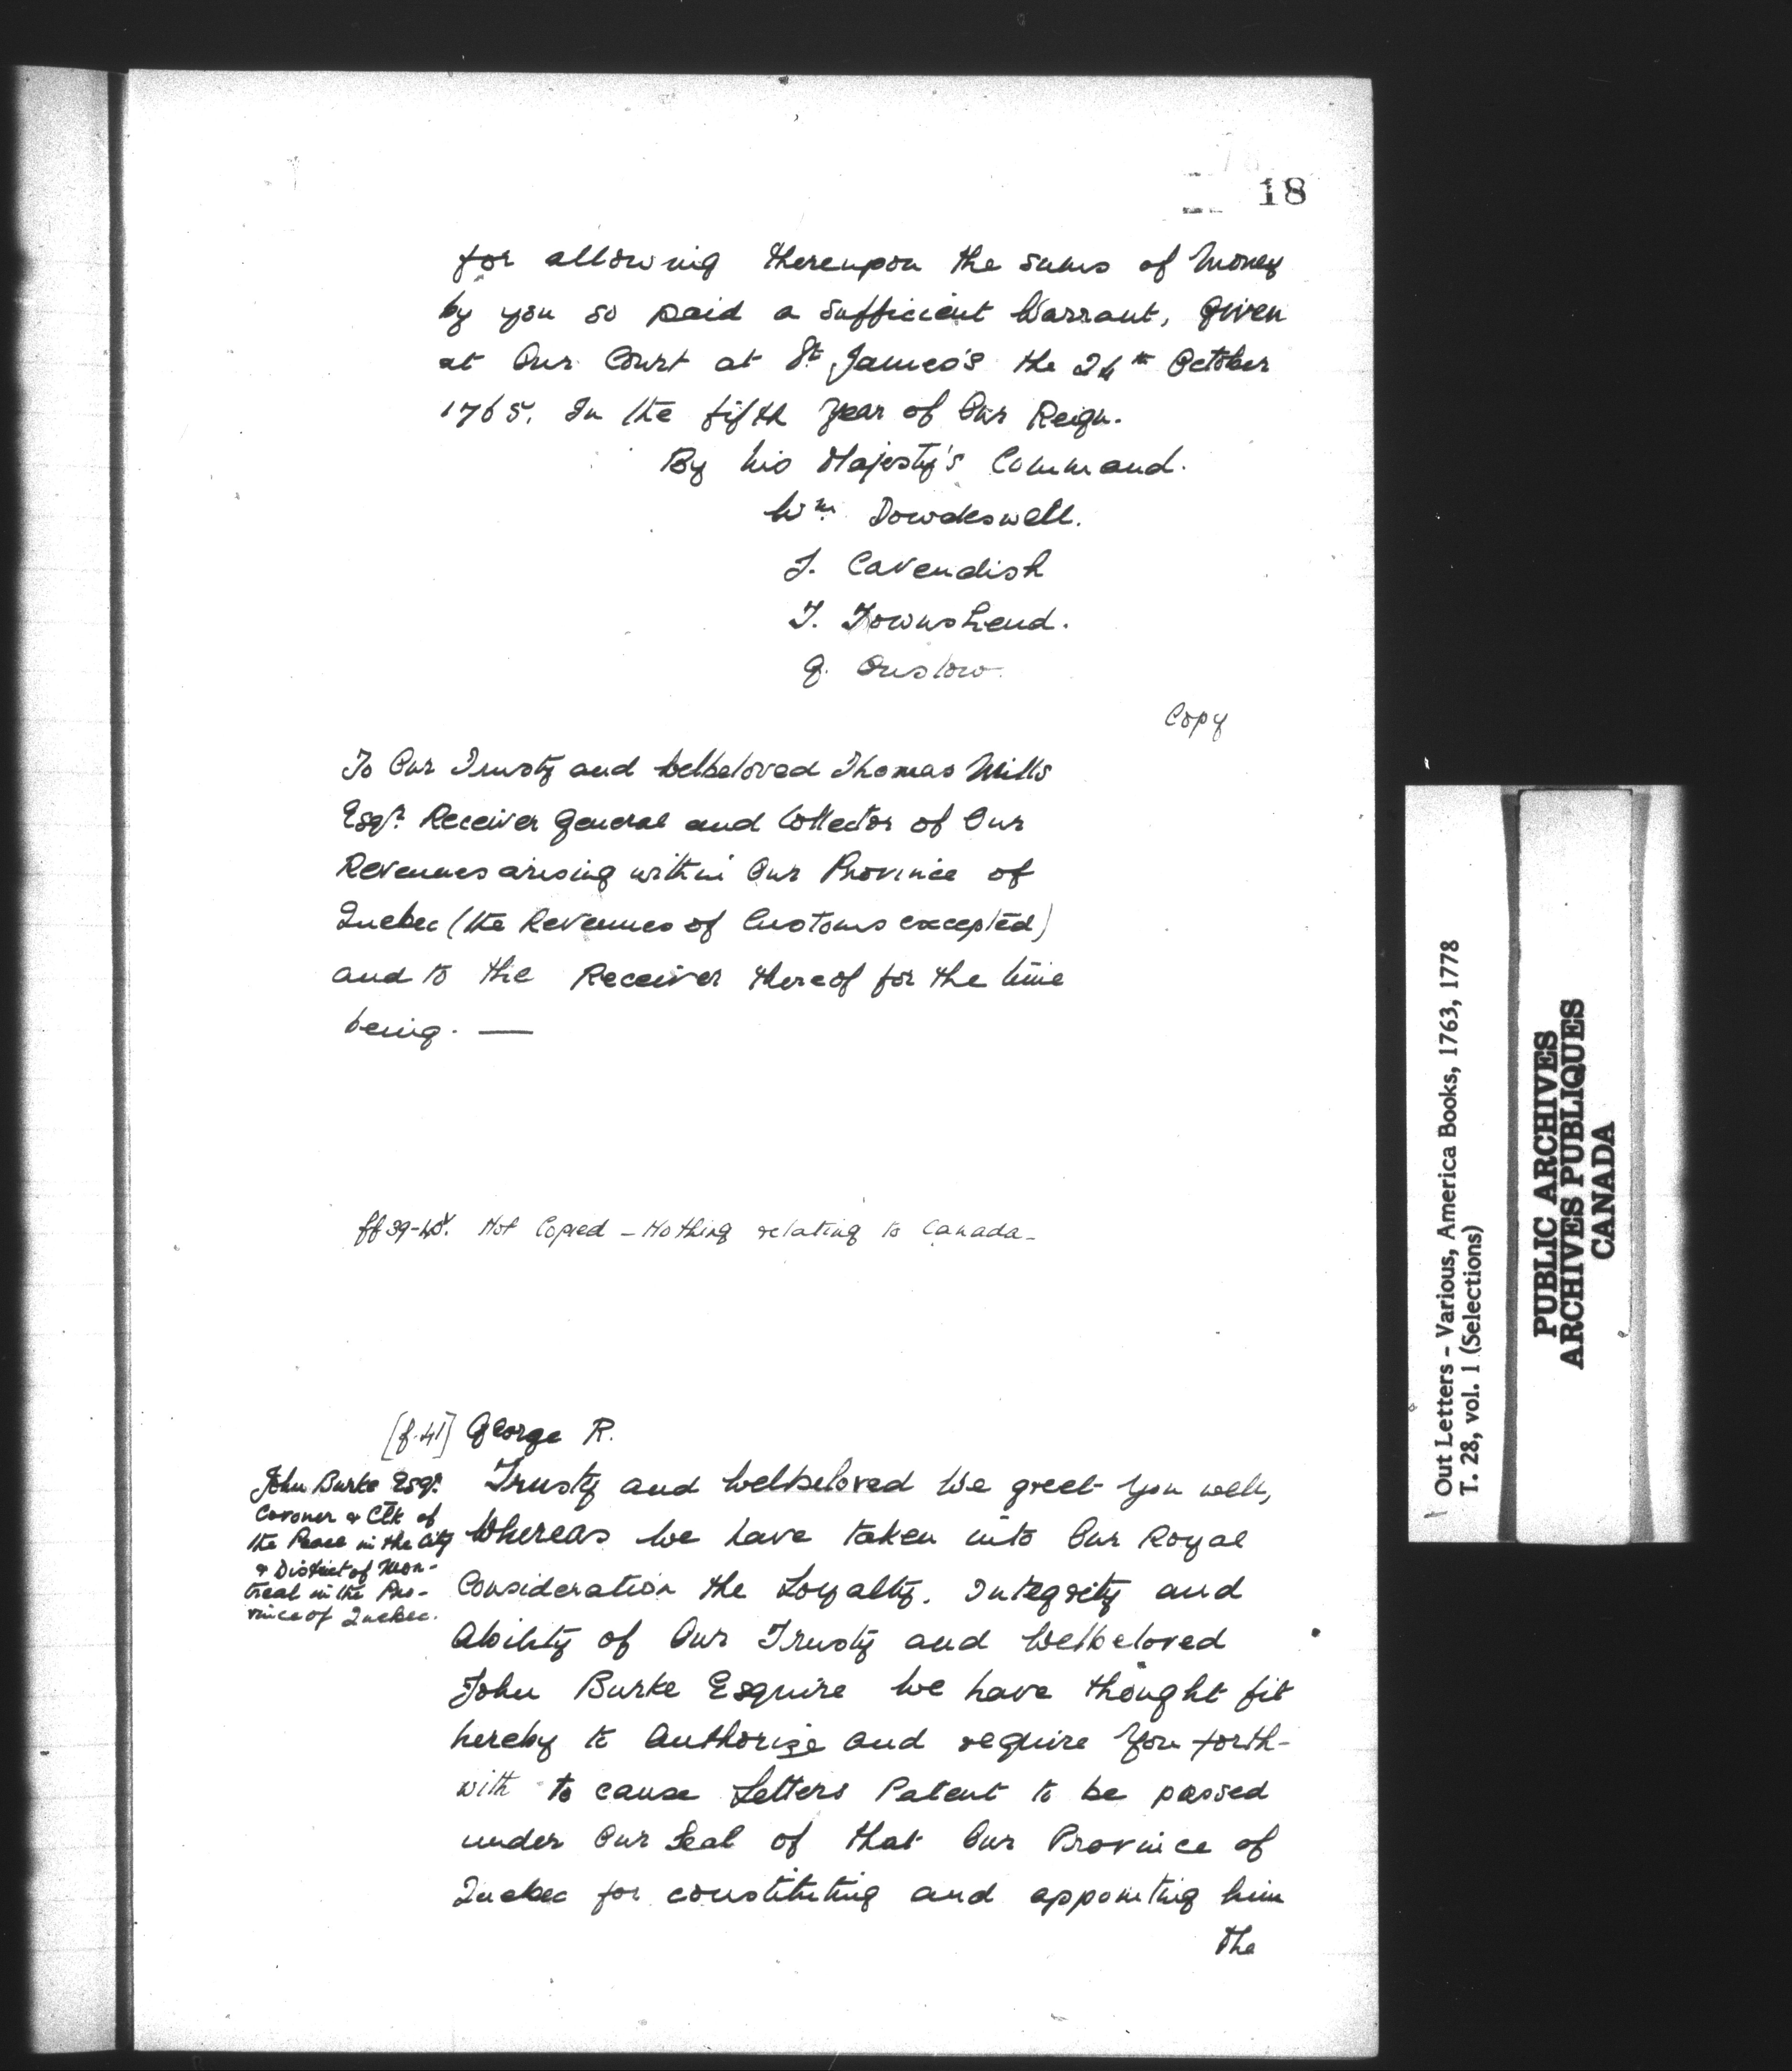 18
for allowing thereupon the sums of Money
by you so paid a sufficient Warrant, Given
at Our Court at St James's the 24th October
1765. In the fifth Year of Our Reign.
By his Majesty's Command.
Wm Dowdeswell.
J. Cavendish
T. Townshend.
G. Onslow.
Copy
To Our Trusty and Welbeloved Thomas Mills
Esqr. Receiver General and Collector of Our
Revenues arising within Our Province of
Quebec (the Revenues of Customs excepted)
and to the Receiver thereof for the time
being. —
ff 39-40. Not Copied - Nothing relating to Canada -
[f. 41] George R.
John Burke Esqr.
Coroner & Clk of
the Peace in the City
& District of Mon-
treal in the Pro-
vince of Quebec.
Trusty and Welbeloved We greet You well,
Whereas We have taken into Our Royal
Consideration the Loyalty, Integrity and
Ability of Our Trusty and Welbeloved
John Burke Esquire We have thought fit
hereby to Authorize and require You forth-
with to cause Letters Patent to be passed
under Our Seal of that Our Province of
Quebec for constituting and appointing him
the
Out Letters - Various, America Books, 1763, 1778
T. 28, vol. 1 (Selections)
PUBLIC ARCHIVES
ARCHIVES PUBLIQUES
CANADA